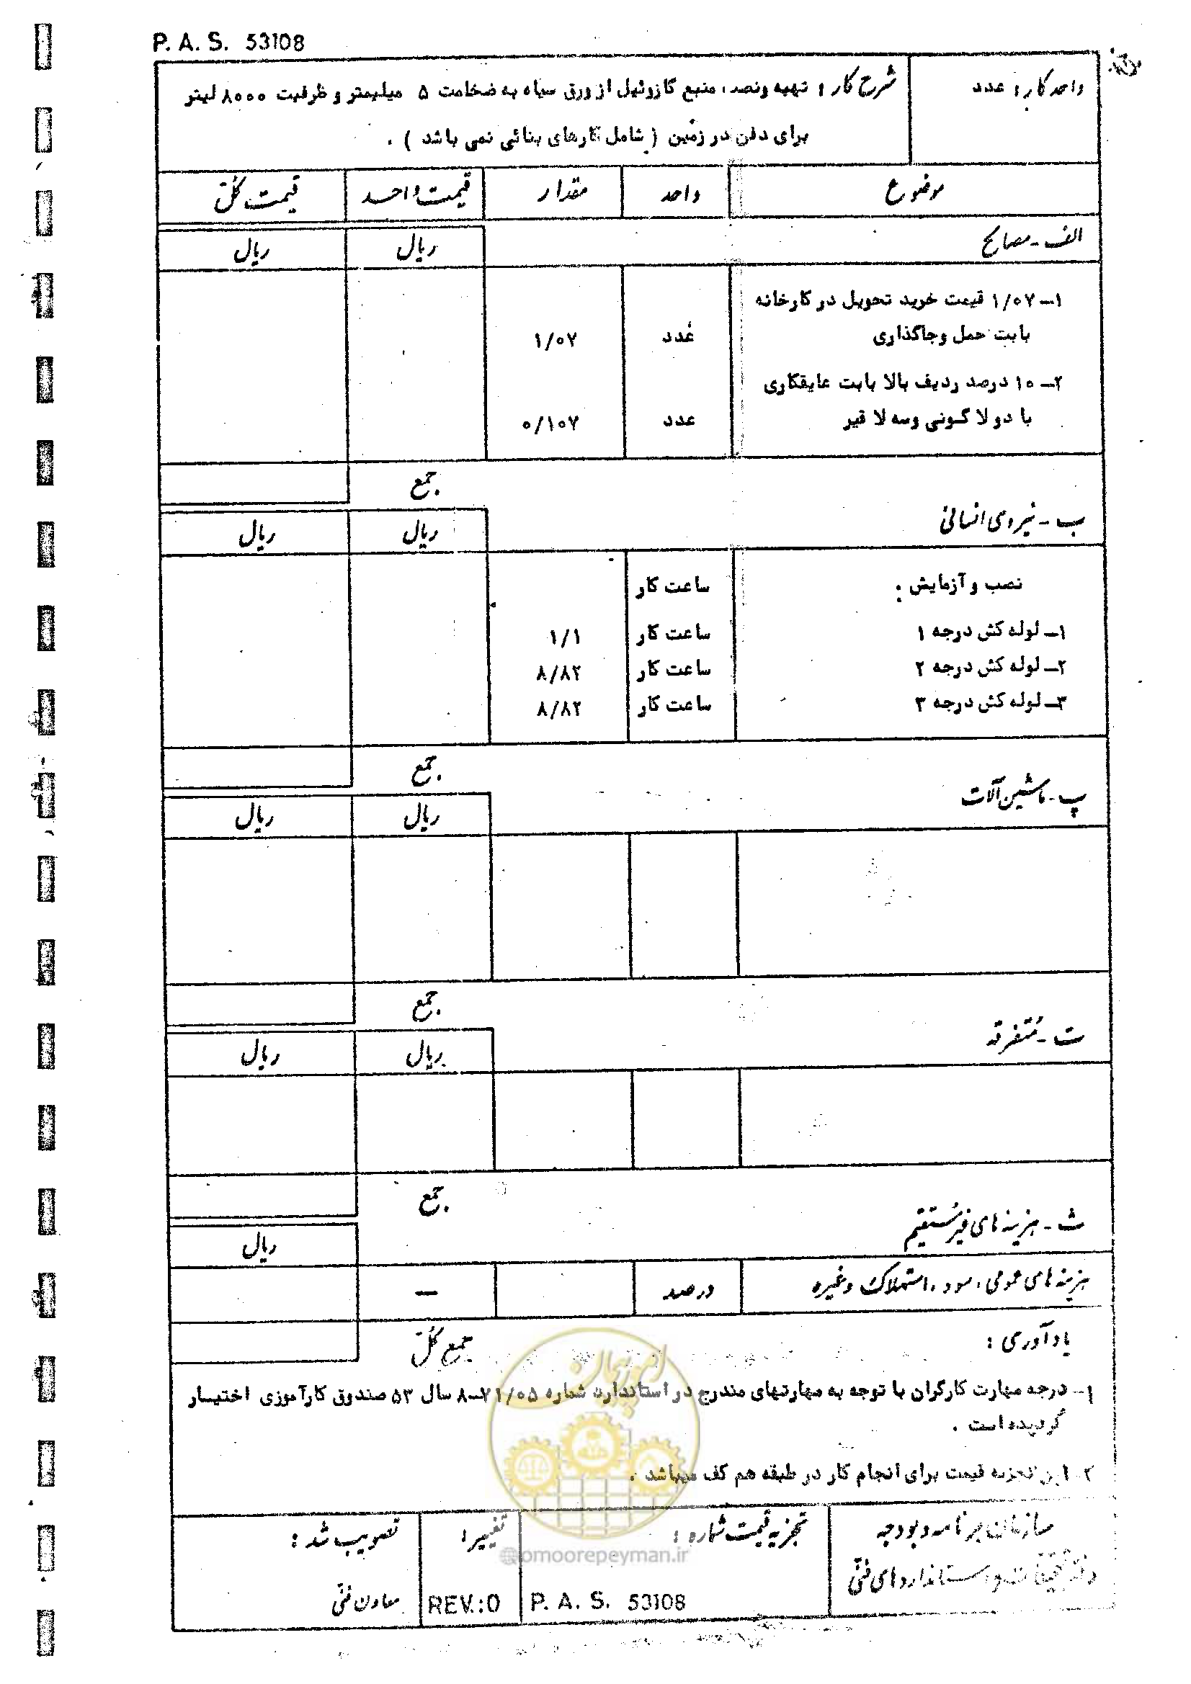 P. A. S. 53108
واحد کار : عدد
شرح کار : تهیه ونصب منبع گازوئیل از ورق سیاه به ضخامت ۵ میلیمتر و ظرفیت ۸۰۰۰ لیتر
برای دفن در زمین ( شامل کارهای بنائی نمی باشد ) .
موضوع واحد مقدار قیمت واحد قیمت کل
الف - مصالح ریال ریال
۱- ۱/۰۷ قیمت خرید تحویل در کارخانه
بابت حمل وجاگذاری عدد ۱/۰۷
۲- ۱۰ درصد ردیف بالا بابت عایقکاری
با دو لا گونی وسه لا قیر عدد ۰/۱۰۷
جمع
ب - نیروی انسانی ریال ریال
نصب و آزمایش : ساعت کار
۱- لوله کش درجه ۱ ساعت کار ۱/۱
۲- لوله کش درجه ۲ ساعت کار ۸/۸۲
۳- لوله کش درجه ۳ ساعت کار ۸/۸۲
جمع
پ - ماشین آلات ریال ریال
جمع
ت - متفرقه ریال ریال
جمع
ث - هزینه های غیرمستقیم ریال
هزینه های عمومی ، سود ، استهلاک وغیره درصد —
جمع کل
یادآوری :
۱- درجه مهارت کارگران با توجه به مهارتهای مندرج در استاندارد شماره ۷۱/۰۵-۸ سال ۵۳ صندوق کارآموزی اختیار
گردیده است .
۲- این تجزیه قیمت برای انجام کار در طبقه هم کف میباشد .
امور پیمان
@omoorepeyman.ir
سازمان برنامه و بودجه
دفتر تحقیقات و استانداردهای فنی
تجزیه قیمت شماره :
P. A. S. 53108
تغییر :
REV.:0
تصویب شد :
معاون فنی